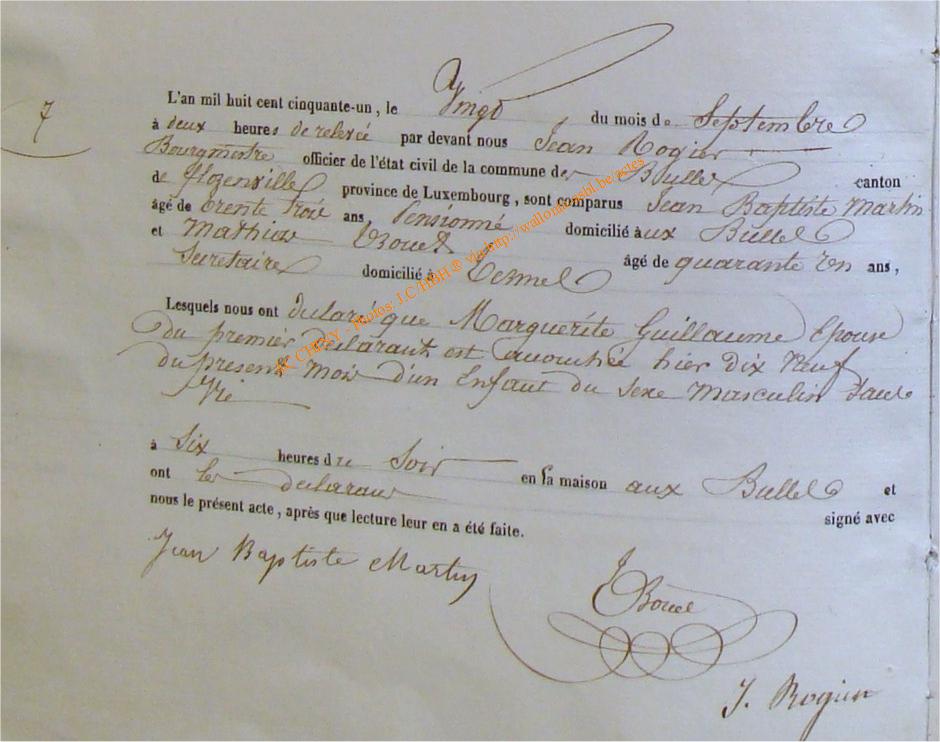 7
L'an mil huit cent cinquante-un, le Vingt du mois de Septembre
à deux heures de relevée par devant nous Jean Rogier
Bourgmestre officier de l'état civil de la commune des Bulles canton
de florenville province de Luxembourg, sont comparus Jean Baptiste Martin
âgé de trente trois ans, Pensionné domicilié aux Bulles
et Mathias âgé de quarante un ans,
Secretaire domicilié à
Lesquels nous ont déclaré que Marguérite Guillaume Epouse
du premier déclarant est accouchée hier dix neuf
du present mois d'un Enfant du sexe masculin sans
Vie
à Six heures du Soir en sa maison aux Bulles et
ont les declarans signé avec
nous le présent acte, après que lecture leur en a été faite.
Jean Baptiste Martin
J. Rogier
AC CHINY - Photos: J.C HBH © via http://walloniansbl.be/actes